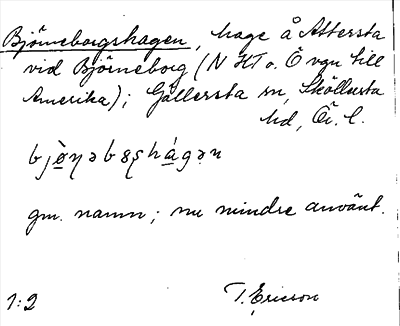 Björneborgshagen, hage å Attersta
vid Björneborg (N HT o. Ö vgn till
Amerika); Gällersta sn, Sköllersta
hd, Ör. l.
gm. namn; nu mindre använt.
1:2 T. Ericson